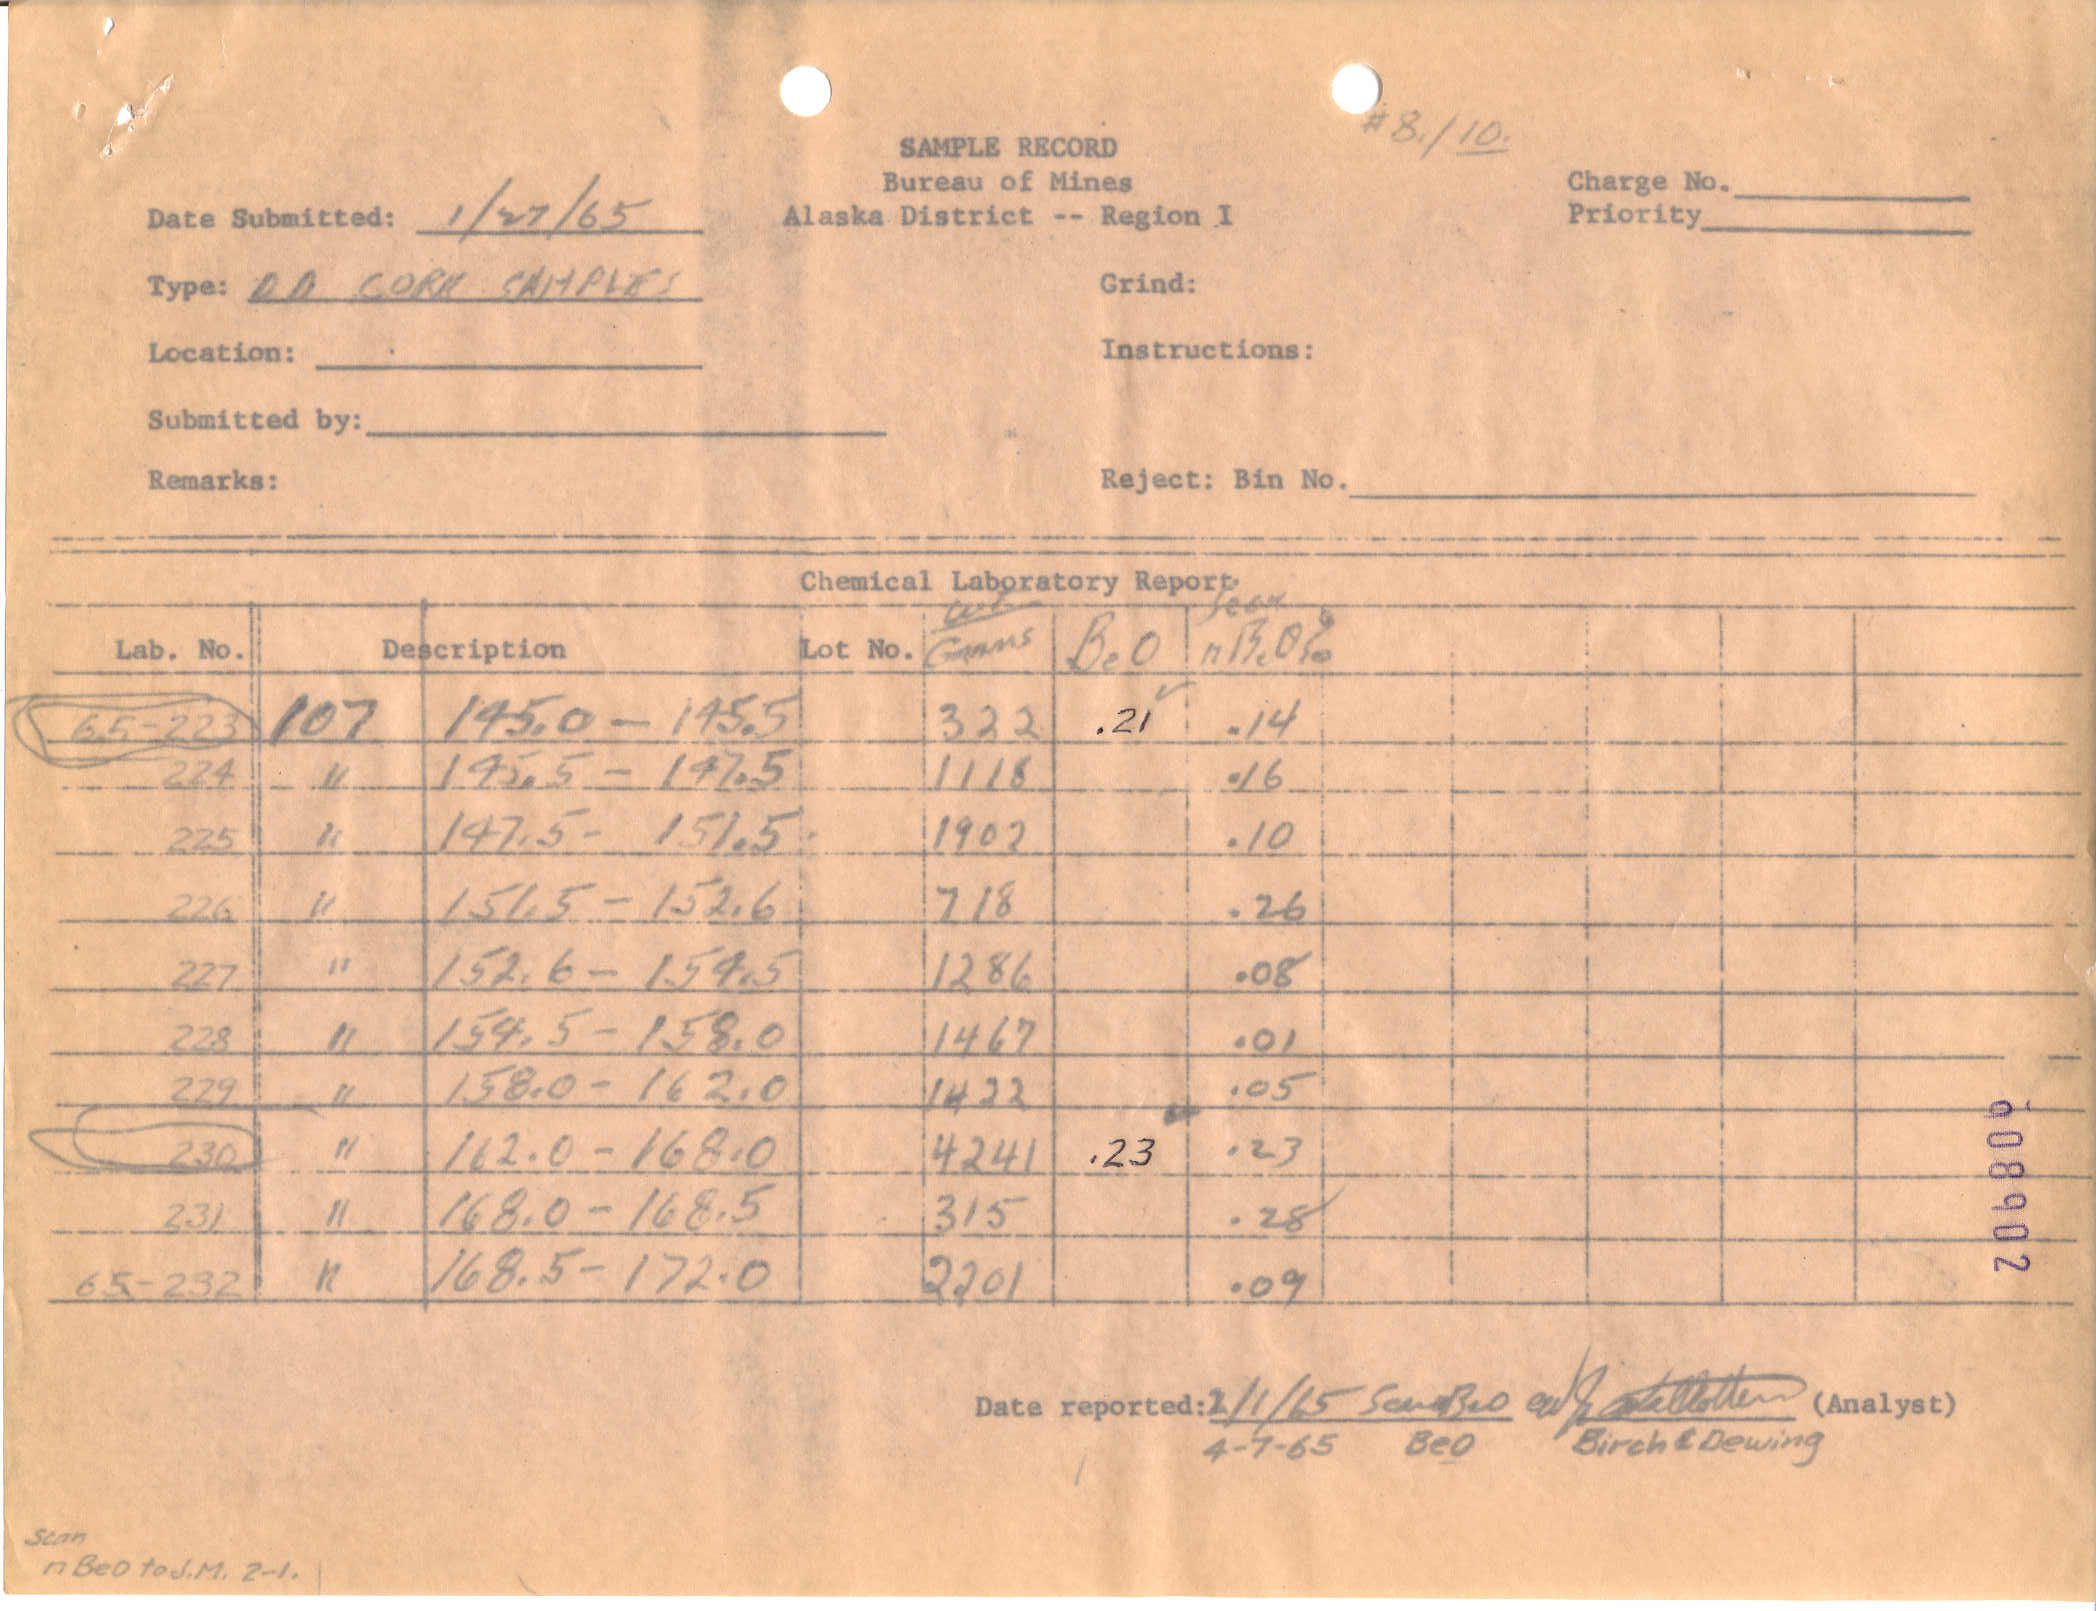 #8./10.
SAMPLE RECORD
Bureau of Mines
Alaska District -- Region I
Charge No.
Priority
Date Submitted: 1/27/65
Type: DD CORE SAMPLES
Grind:
Location:
Instructions:
Submitted by:
Remarks:
Reject: Bin No.
Chemical Laboratory Report
Lab. No. Description Lot No. Wt Grams BeO Scan nBeO%
65-223 107 145.0 - 145.5 322 .21 ✓ .14
224 " 145.5 - 147.5 1118 .16
225 " 147.5 - 151.5 1902 .10
226 " 151.5 - 152.6 718 .26
227 " 152.6 - 154.5 1286 .08
228 " 154.5 - 158.0 1467 .01
229 " 158.0 - 162.0 1422 .05
230 " 162.0 - 168.0 4241 .23 .23
231 " 168.0 - 168.5 315 .28
65-232 " 168.5 - 172.0 2201 .09
Date reported: 2/1/65 Scan BeO (Analyst)
4-7-65 BeO Birch & Dewing
Scan
n BeO to J.M. 2-1.